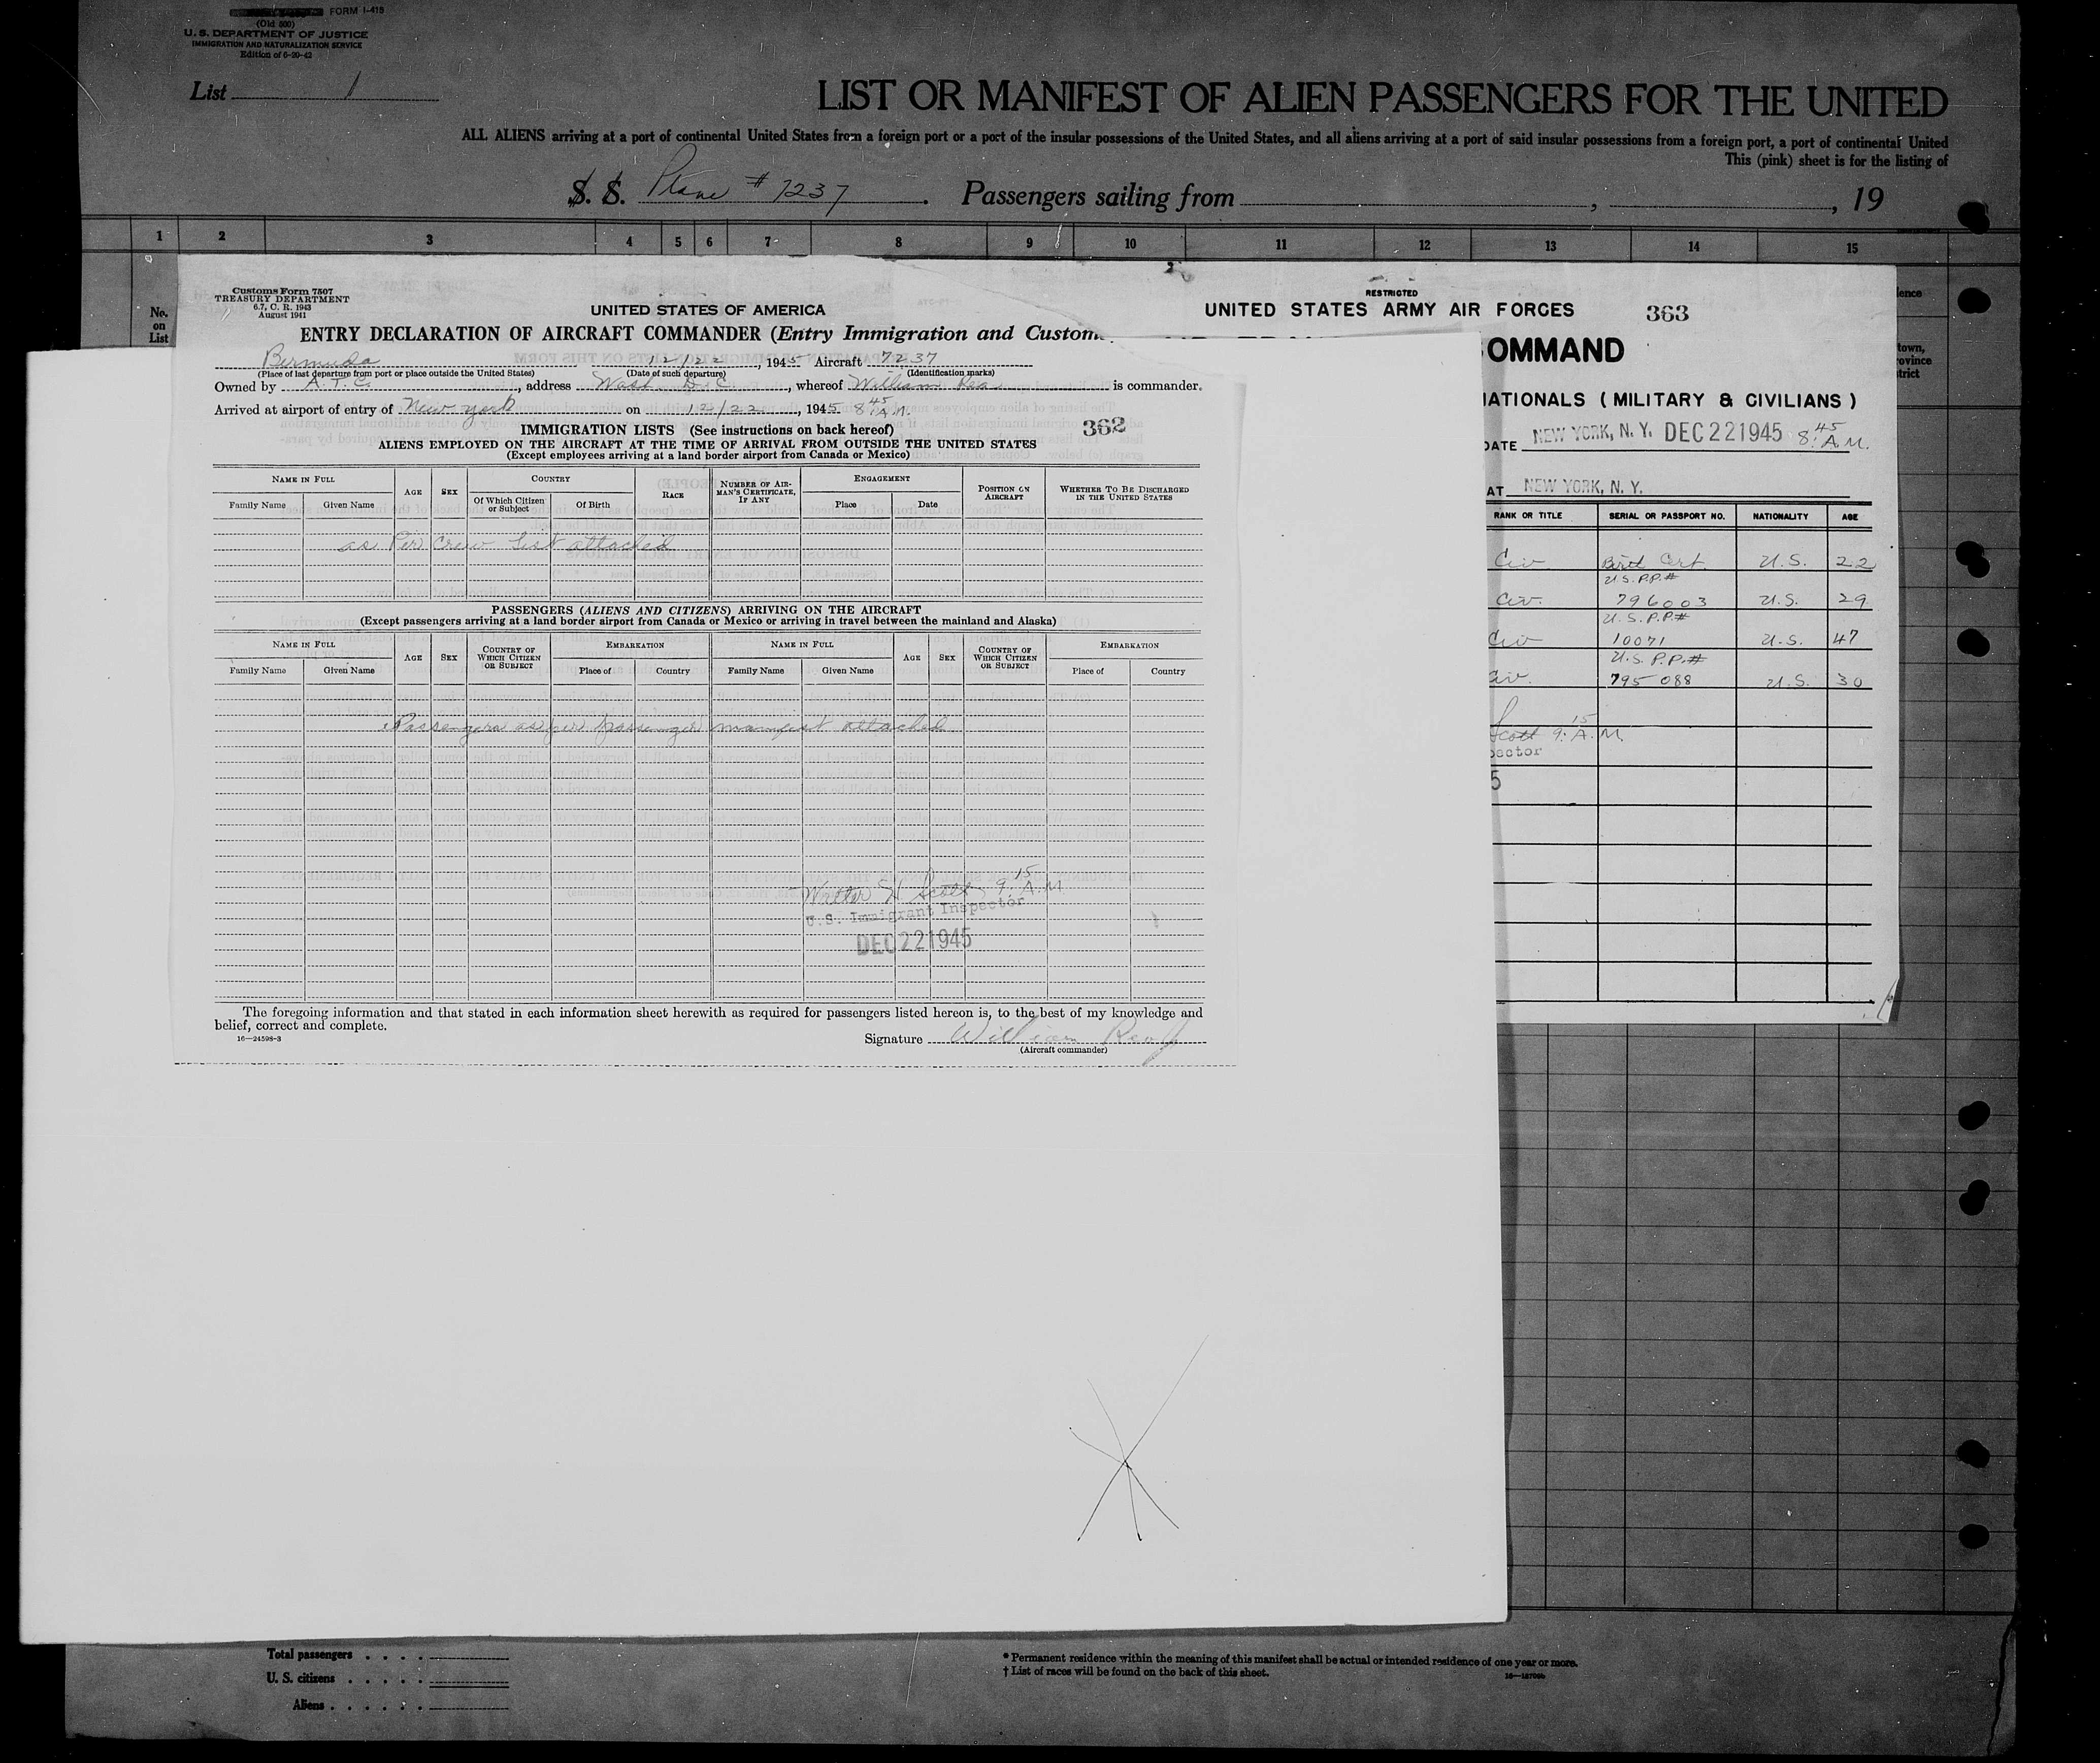 FORM I-415
(Old 500)
U. S. DEPARTMENT OF JUSTICE
IMMIGRATION AND NATURALIZATION SERVICE
Edition of 6-20-42
List 1
LIST OR MANIFEST OF ALIEN PASSENGERS FOR THE UNITED
ALL ALIENS arriving at a port of continental United States from a foreign port or a port of the insular possessions of the United States, and all aliens arriving at a port of said insular possessions from a foreign port, a port of continental United
This (pink) sheet is for the listing of
S. S. Plane # 7237. Passengers sailing from , , 19
1 2 3 4 5 6 7 8 9 10 11 12 13 14 15
No. on List
Customs Form 7507
TREASURY DEPARTMENT
6.7, C. R. 1943
August 1941
UNITED STATES OF AMERICA
ENTRY DECLARATION OF AIRCRAFT COMMANDER (Entry Immigration and Custom
Bermuda 12/22, 1945 Aircraft 7237
(Place of last departure from port or place outside the United States) (Date of such departure) (Identification marks)
Owned by A.T.C., address Wash. D.C., whereof William Rea is commander.
Arrived at airport of entry of New York on 12/22, 1945 8:45 A.M.
362
IMMIGRATION LISTS (See instructions on back hereof)
ALIENS EMPLOYED ON THE AIRCRAFT AT THE TIME OF ARRIVAL FROM OUTSIDE THE UNITED STATES
(Except employees arriving at a land border airport from Canada or Mexico)
NAME IN FULL AGE SEX COUNTRY RACE NUMBER OF AIRMAN'S CERTIFICATE, IF ANY ENGAGEMENT POSITION ON AIRCRAFT WHETHER TO BE DISCHARGED IN THE UNITED STATES
Family Name Given Name Of Which Citizen or Subject Of Birth Place Date
as Per Crew List attached
PASSENGERS (ALIENS AND CITIZENS) ARRIVING ON THE AIRCRAFT
(Except passengers arriving at a land border airport from Canada or Mexico or arriving in travel between the mainland and Alaska)
NAME IN FULL AGE SEX COUNTRY OF WHICH CITIZEN OR SUBJECT EMBARKATION NAME IN FULL AGE SEX COUNTRY OF WHICH CITIZEN OR SUBJECT EMBARKATION
Family Name Given Name Place of Country Family Name Given Name Place of Country
Passengers as per passenger manifest attached
Walter H Scott 9:15 A.M
U.S. Immigrant Inspector
DEC 22 1945
The foregoing information and that stated in each information sheet herewith as required for passengers listed hereon is, to the best of my knowledge and
belief, correct and complete.
16—24598-3
Signature William Rea
(Aircraft commander)
RESTRICTED
UNITED STATES ARMY AIR FORCES 363
OMMAND
ATIONALS (MILITARY & CIVILIANS)
DATE NEW YORK, N. Y. DEC 22 1945 8:45 A.M.
AT NEW YORK, N. Y.
RANK OR TITLE SERIAL OR PASSPORT NO. NATIONALITY AGE
Civ Birth Cert. U.S. 22
U.S. P.P.#
Civ. 796003 U.S. 29
U.S. P.P.#
Civ 10071 U.S. 47
U.S. P.P.#
Civ. 795088 U.S. 30
Scott 9:15 A.M.
pector
5
ence
town,
ovince
trict
Total passengers . . . .
U. S. citizens . . . . .
Aliens . . . . . .
* Permanent residence within the meaning of this manifest shall be actual or intended residence of one year or more.
† List of races will be found on the back of this sheet.